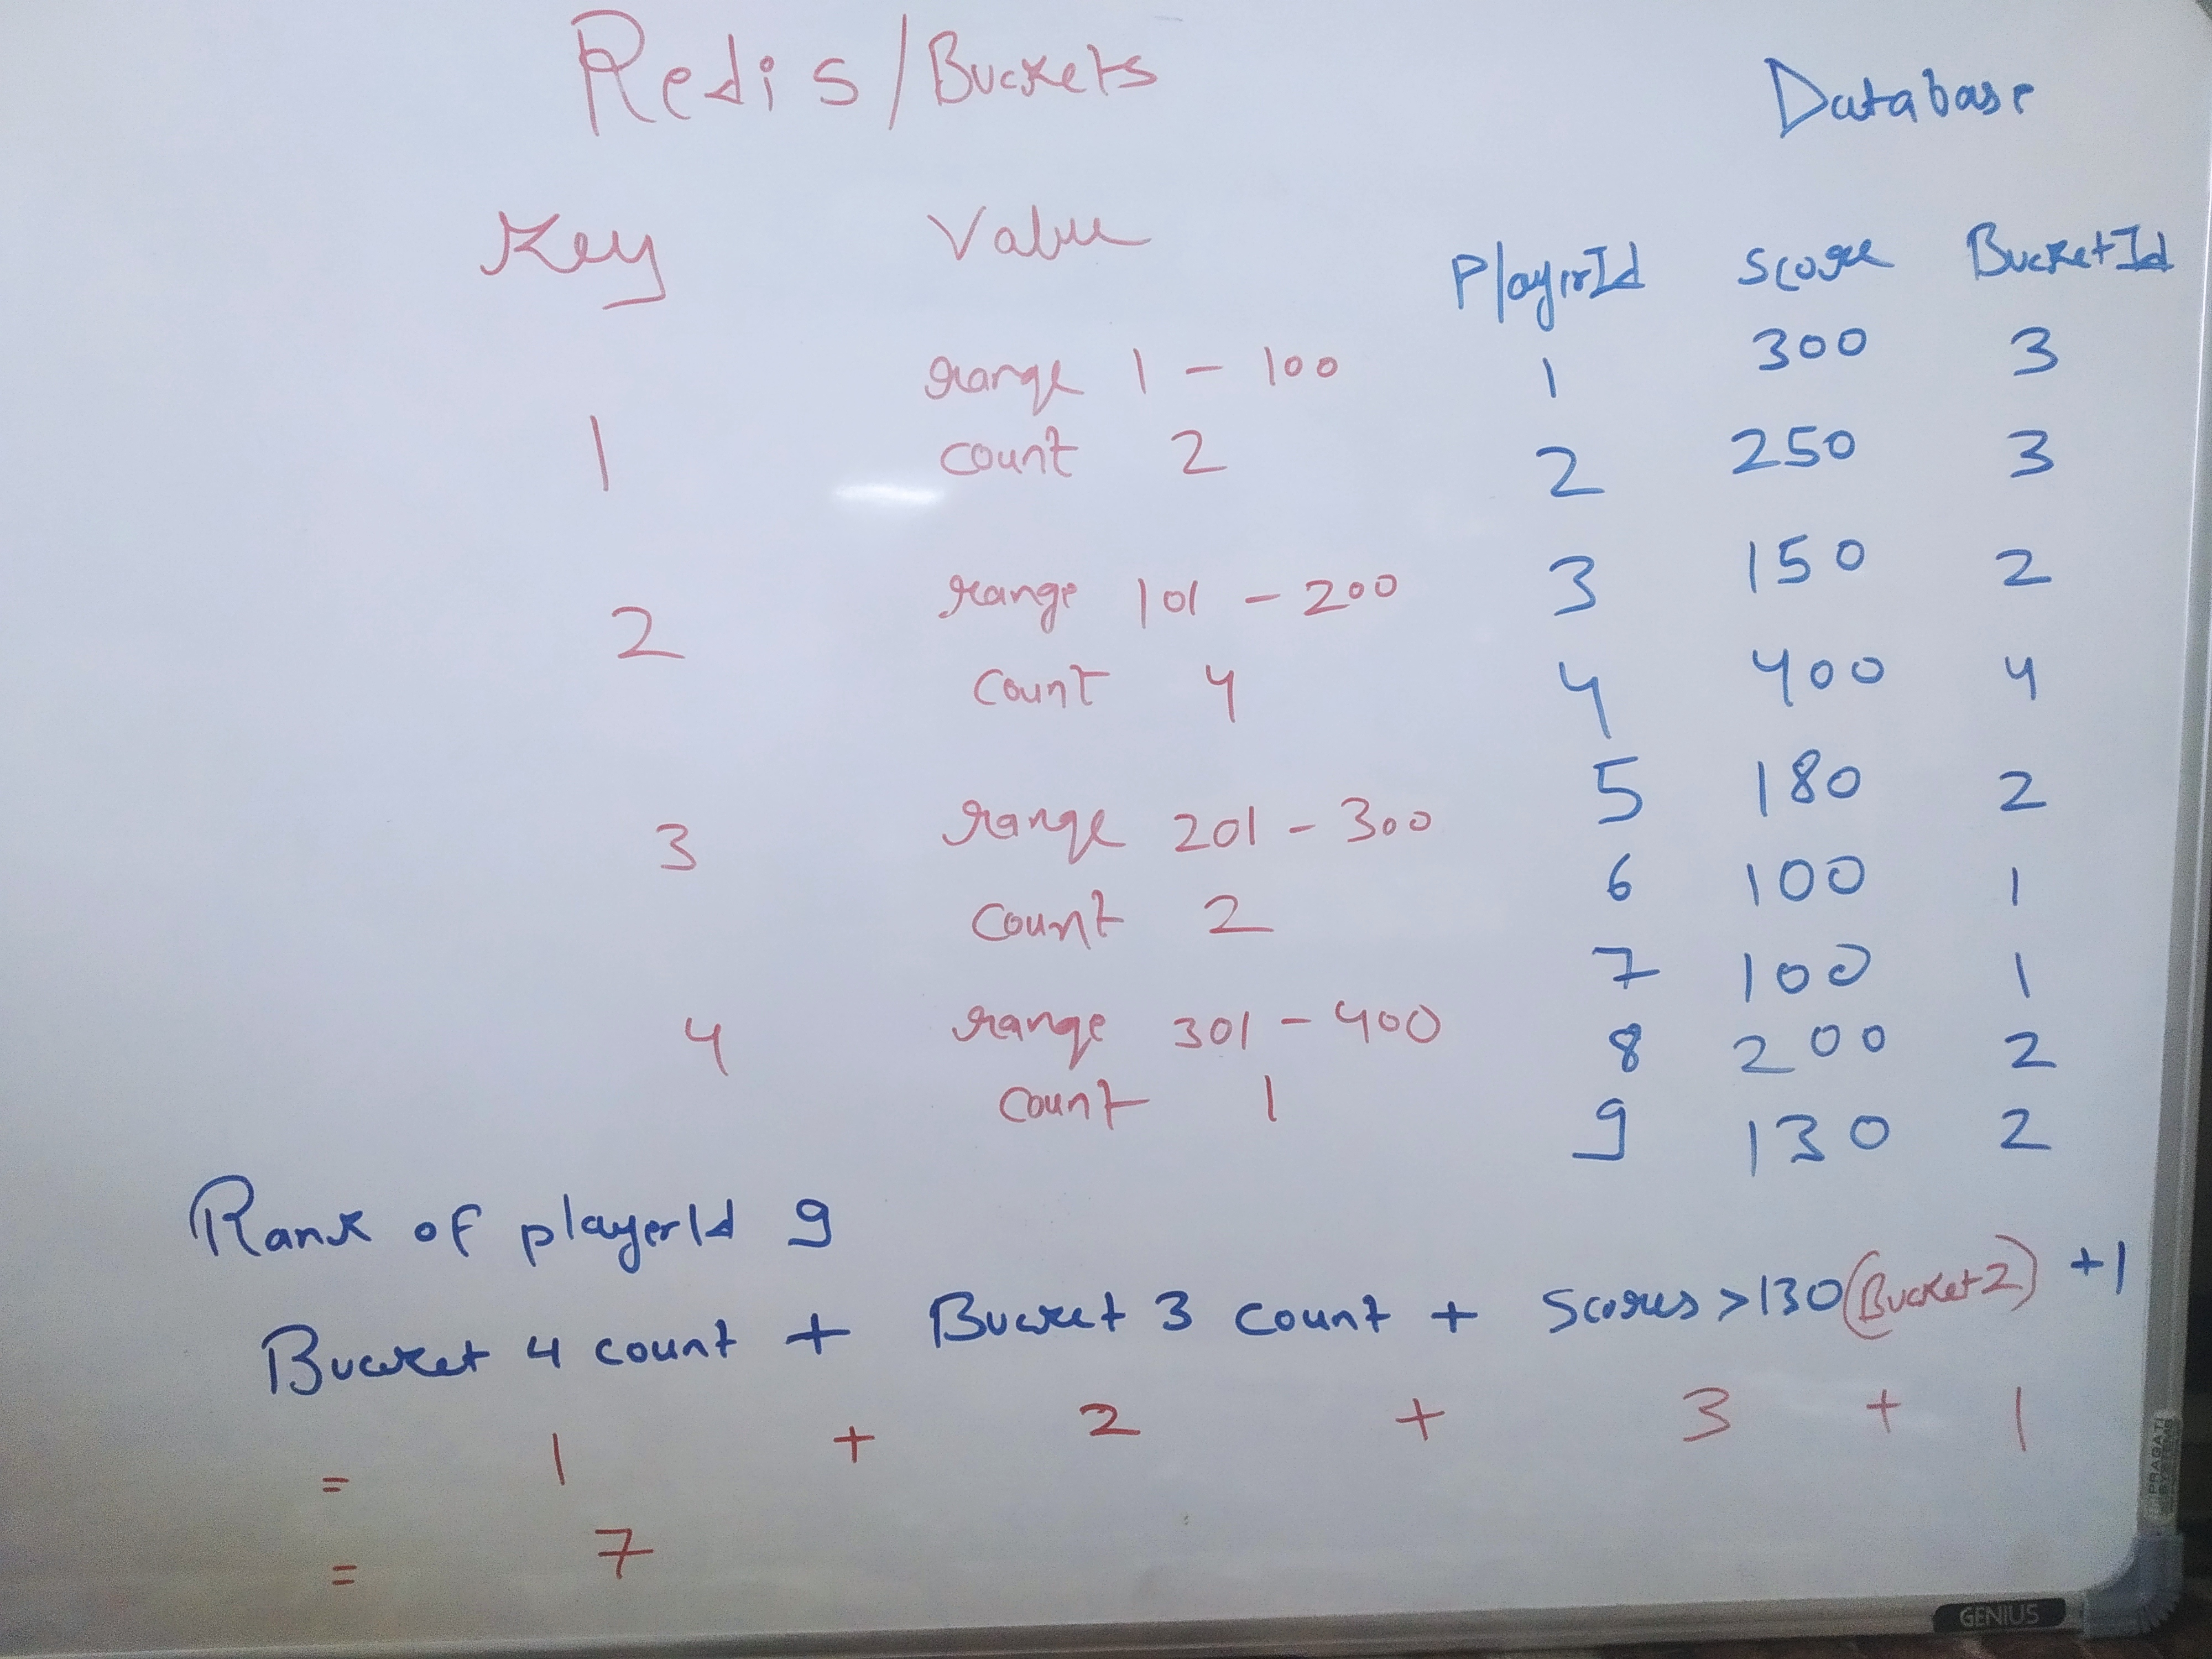 Redis/Buckets
Key Value
1 range 1 - 100
count 2
2 range 101 - 200
count 4
3 range 201 - 300
count 2
4 range 301 - 400
count 1
Database
PlayerId Score BucketId
1 300 3
2 250 3
3 150 2
4 400 4
5 180 2
6 100 1
7 100 1
8 200 2
9 130 2
Rank of playerId 9
Bucket 4 count + Bucket 3 count + Scores >130 (Bucket 2) +1
= 1 + 2 + 3 + 1
= 7
PRAGATI
SYSTEMS
GENIUS